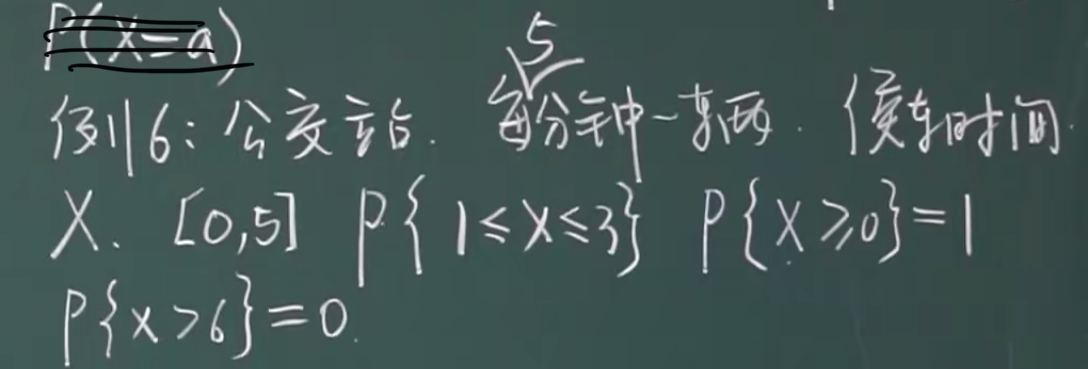 P(X=a)
例6：公交站. 每5分钟一车辆. 候车时间.
X. [0,5] P{1≤X≤3} P{X≥0}=1
P{X>6}=0.